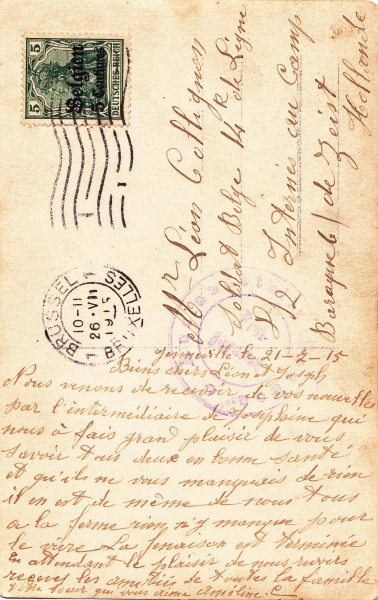 5
5
Belgien
5 Centimes
DEUTSCHES REICH
BRUSSEL
10-11
26·VII
1915
BRUXELLES
Mr Léon Collignon
Soldat Belge 14e de Ligne
Internés au Camp
Baraque 6 / de Zeist
Hollande
le 21-7-15
Biens chers Léon et Joseph
Nous venons de recevoir de vos nouvelles
par l'intermédiaire de Joséphine qui
nous à fais grand plaisir de vous
savoir tous deux en bonne santé
et qu'ils ne vous manquais de rien
il en est de même de nous tous
a la ferme rien n'y manque pour
le vivre La fenaison est terminée
En attendant le plaisir de nous revoirs
recevez les amitiés de toutes la famille
Votre soeur qui vous aime C